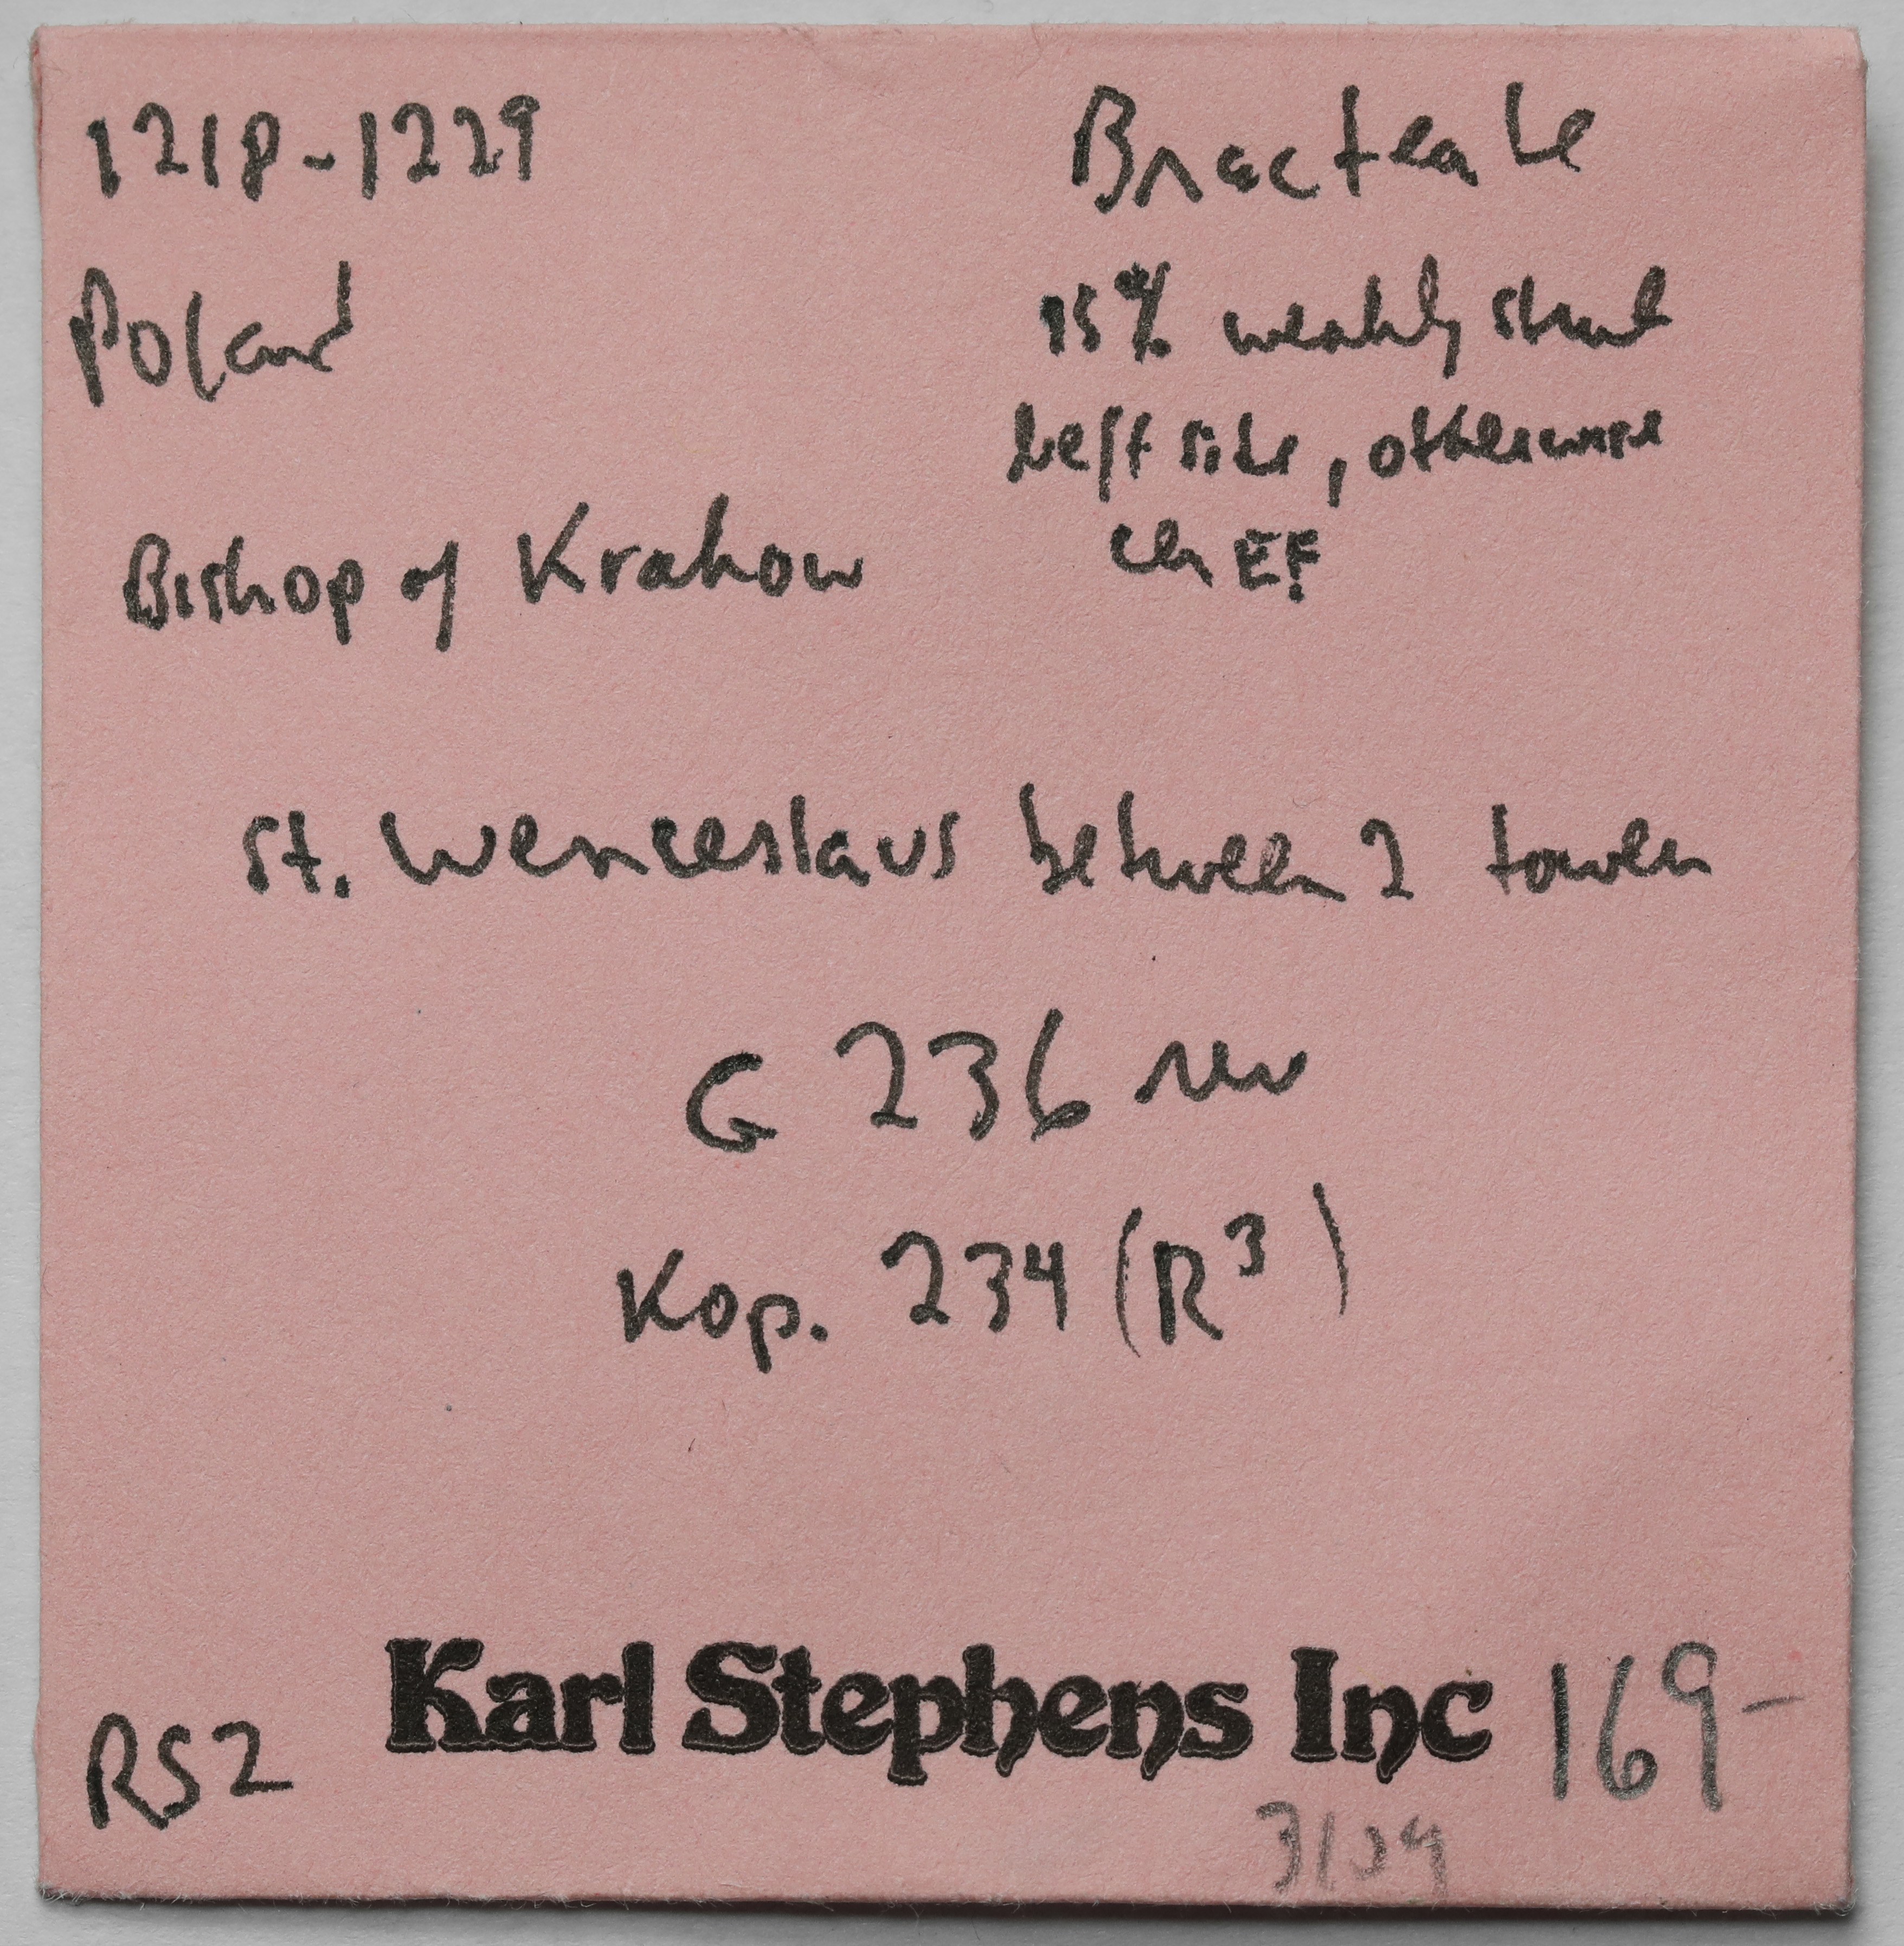 1218-1229
Bracteate
Poland
15% weakly struck
left side, otherwise
Bishop of Krakow
ch EF
St. Wenceslaus between 2 towers
G 236 rev
Kop. 234 (R3)
Karl Stephens Inc
169-
RS2